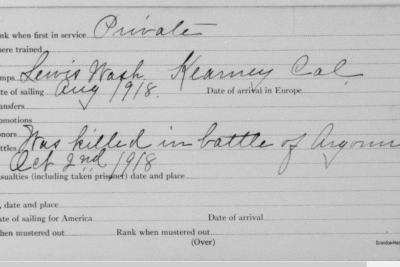 ank when first in service Private
here trained
mps Lewis Wash. Kearney Cal.
te of sailing Aug 1918. Date of arrival in Europe
ansfers
omotions
onors
ttles Was killed in battle of Argonn
Oct 2nd, 1918
sualties (including taken prisoner) date and place
, date and place
ate of sailing for America Date of arrival
hen mustered out Rank when mustered out
(Over)